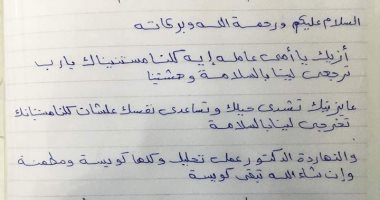 السلام عليكم ورحمة الله وبركاته
أزيك يا أمي عامله إيه كلنا مستنينك يارب
ترجعي لينا بالسلامة وحشتينا
عايزينك تشدي حيلك وتساعدي نفسك علشان كلنا مستنيانك
تخرجي لينا بالسلامة
والنهاردة الدكتور عمل تحليل وكلها كويسة ومطمنة
وإن شاء الله تبقي كويسة